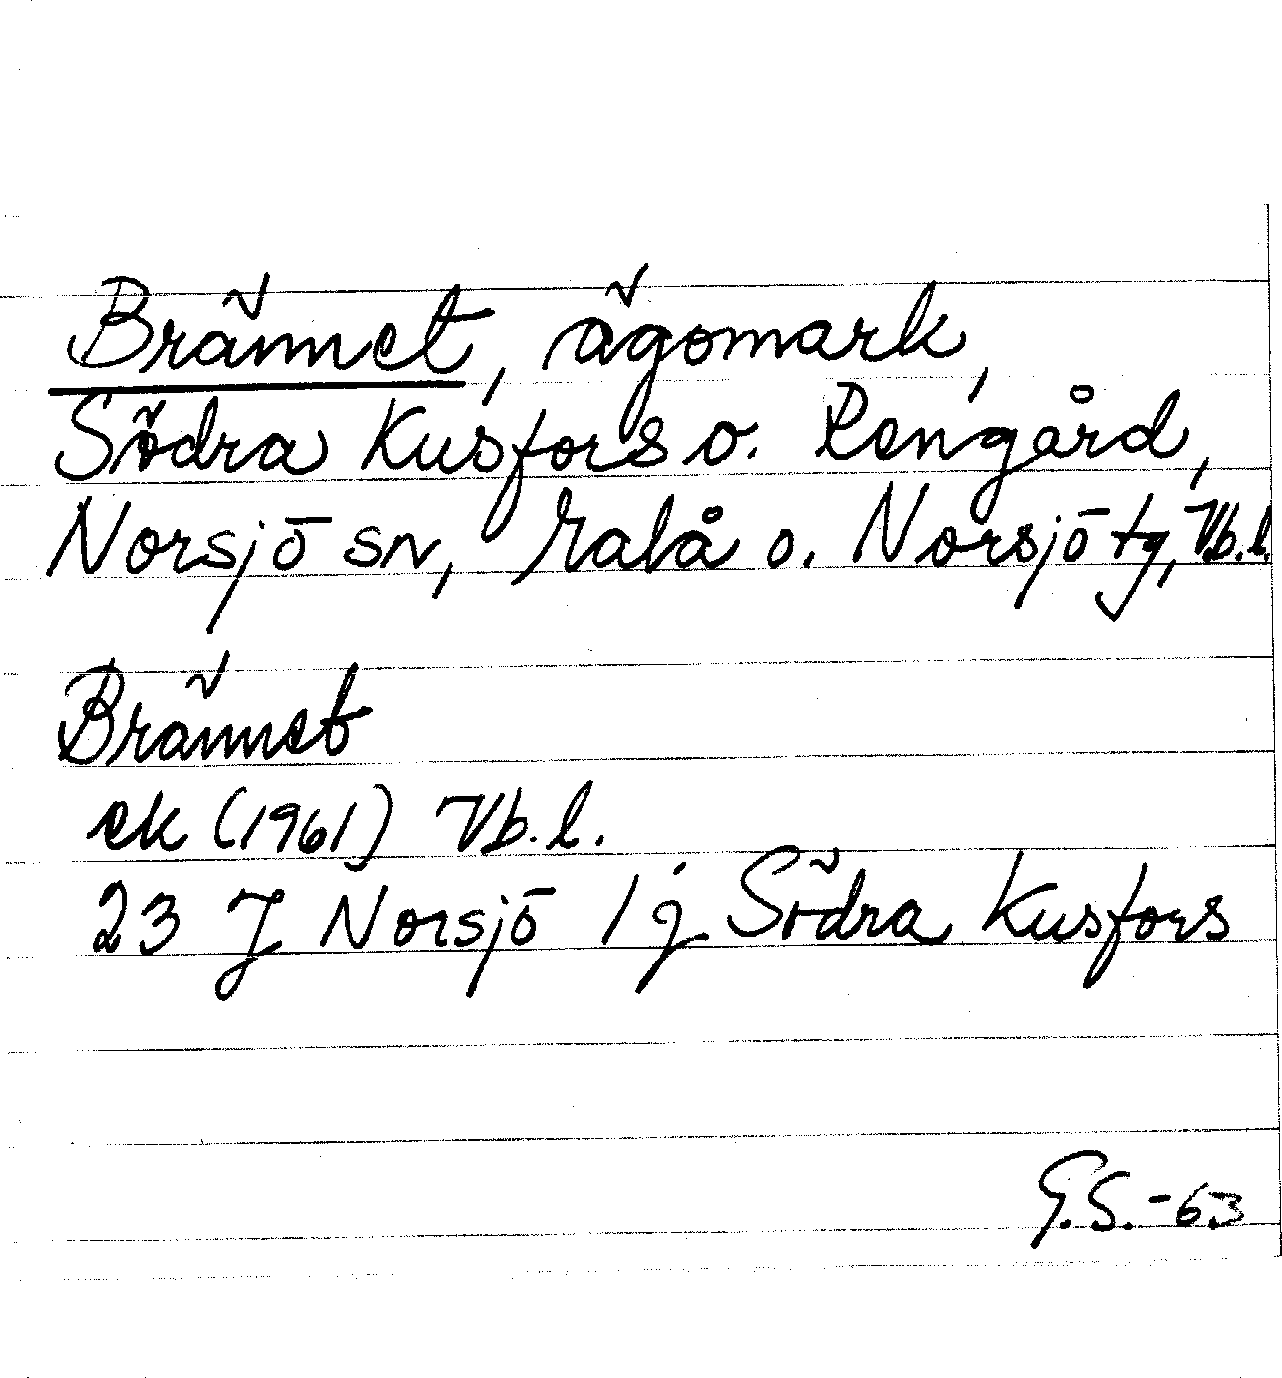 Brännet, ägomark,
Södra Kusfors o. Rengård,
Norsjö sn, Malå o. Norsjö tg, Vb.l.
Brännet
ek (1961) Vb.l.
23 J Norsjö 1 j Södra Kusfors
G.S.-63